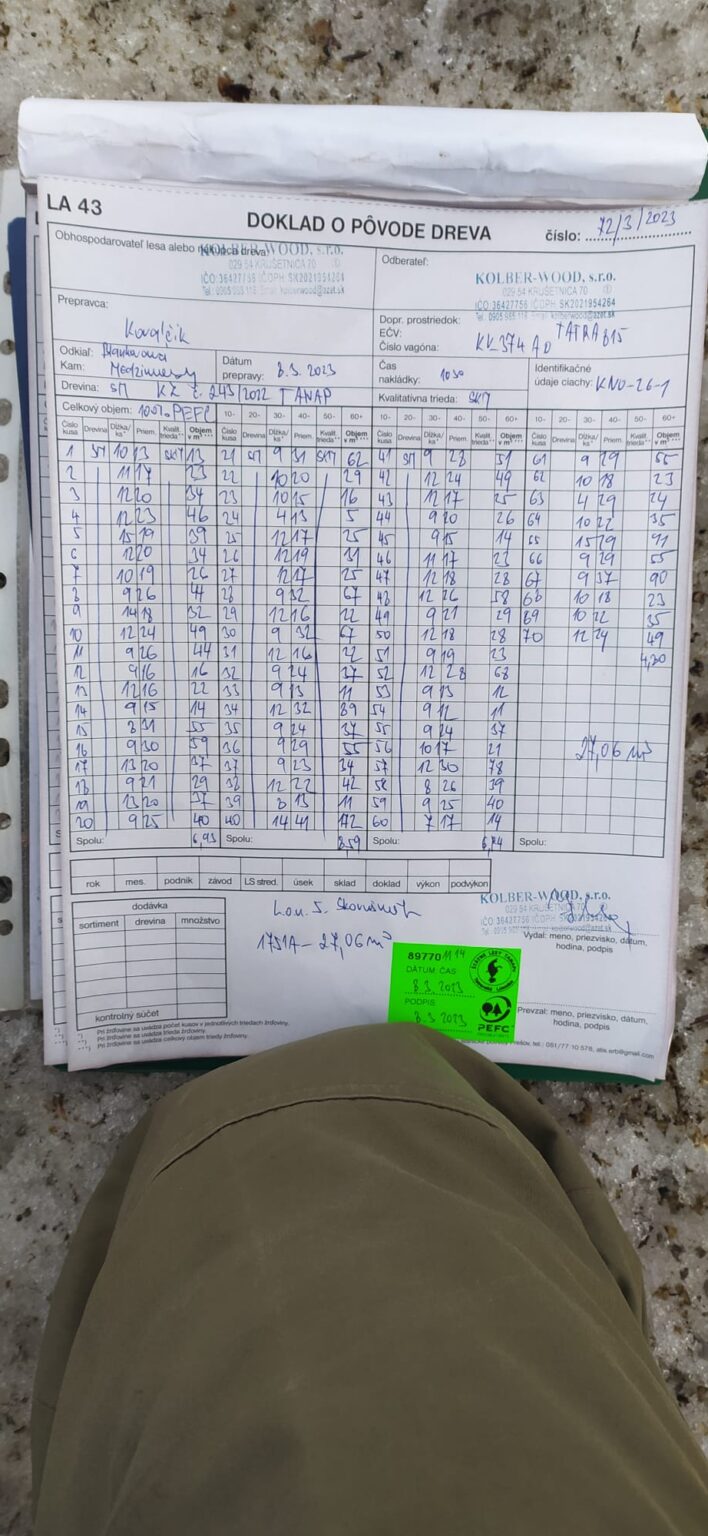 LA 43
DOKLAD O PÔVODE DREVA
číslo: 72/3/2023
Obhospodarovateľ lesa alebo dreva:
KOLBER-WOOD, s.r.o.
029 54 KRUŠETNICA 70
IČO:36427756 IČDPH: SK2021954264
Odberateľ:
KOLBER-WOOD, s.r.o.
029 54 KRUŠETNICA 70
IČO:36427756 IČDPH: SK2021954264
Prepravca:
Kovalčík
Dopr. prostriedok: TATRA 815
EČV:
Číslo vagóna:
Odkiaľ:
Kam:
Dátum prepravy: 8.3.2023
Čas nakládky: 1030
Identifikačné údaje ciachy: KNO-26-1
Drevina: SM KZ č. 243/2022 TANAP
Kvalitatívna trieda:
Celkový objem: 100% PEFC
10- 20- 30- 40- 50- 60+ 10- 20- 30- 40- 50- 60+
Číslo kusa Drevina Dĺžka/ks* Priem. Kvalit. trieda** Objem v m³***
1 SM 10 13 13 21 SM 9 31 62 41 SM 9 28 51 61 9 29 55
2 11 17 23 22 10 20 29 42 12 24 49 62 10 18 23
3 12 20 34 23 10 15 16 43 12 17 25 63 4 29 24
4 12 23 46 24 4 13 5 44 9 20 26 64 10 22 35
5 15 19 39 25 12 17 25 45 9 15 14 65 15 29 91
6 12 20 34 26 12 19 31 46 11 17 23 66 9 29 55
7 10 19 26 27 12 17 25 47 12 18 28 67 9 37 90
8 9 26 44 28 9 32 67 48 12 26 58 68 10 18 23
9 14 18 32 29 12 16 22 49 9 21 29 69 10 22 35
10 12 24 49 30 9 32 67 50 12 18 28 70 12 24 49
11 9 26 44 31 12 16 22 51 9 19 23 4,80
12 9 16 16 32 9 24 37 52 12 28 68
13 12 16 22 33 9 13 11 53 9 13 12
14 9 15 14 34 12 32 89 54 9 12 11
15 8 31 55 35 9 24 37 55 9 24 37
16 9 30 59 36 9 29 55 56 10 17 21 27,06 m³
17 13 20 37 37 9 23 34 57 12 30 78
18 9 21 29 38 12 22 42 58 8 26 39
19 13 20 37 39 8 13 11 59 9 25 40
20 9 25 40 40 14 41 172 60 7 17 14
Spolu: 6,93 Spolu: 8,59 Spolu: 6,74 Spolu:
rok mes. podnik závod LS stred. úsek sklad doklad výkon podvýkon
dodávka
sortiment drevina množstvo
kontrolný súčet
1751A - 27,06 m³
KOLBER-WOOD, s.r.o.
029 54 KRUŠETNICA 70
Vydal: meno, priezvisko, dátum,
hodina, podpis
89770
DÁTUM ČAS
8.3.2023
PODPIS
8.3.2023
PEFC
Prevzal: meno, priezvisko, dátum,
hodina, podpis
*) Pri žrďovine sa uvádza počet kusov v jednotlivých triedach žrďoviny.
**) Pri žrďovine sa uvádza trieda žrďoviny.
***) Pri žrďovine sa uvádza celkový objem triedy žrďoviny.